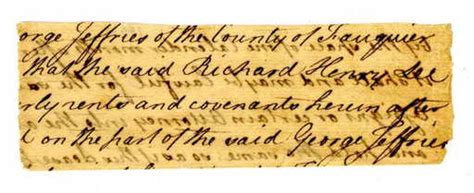 orge Jeffries of the County of Fauquier
that the said Richard Henry Lee
rly rents and covenants herein after
on the part of the said George Jeffrie